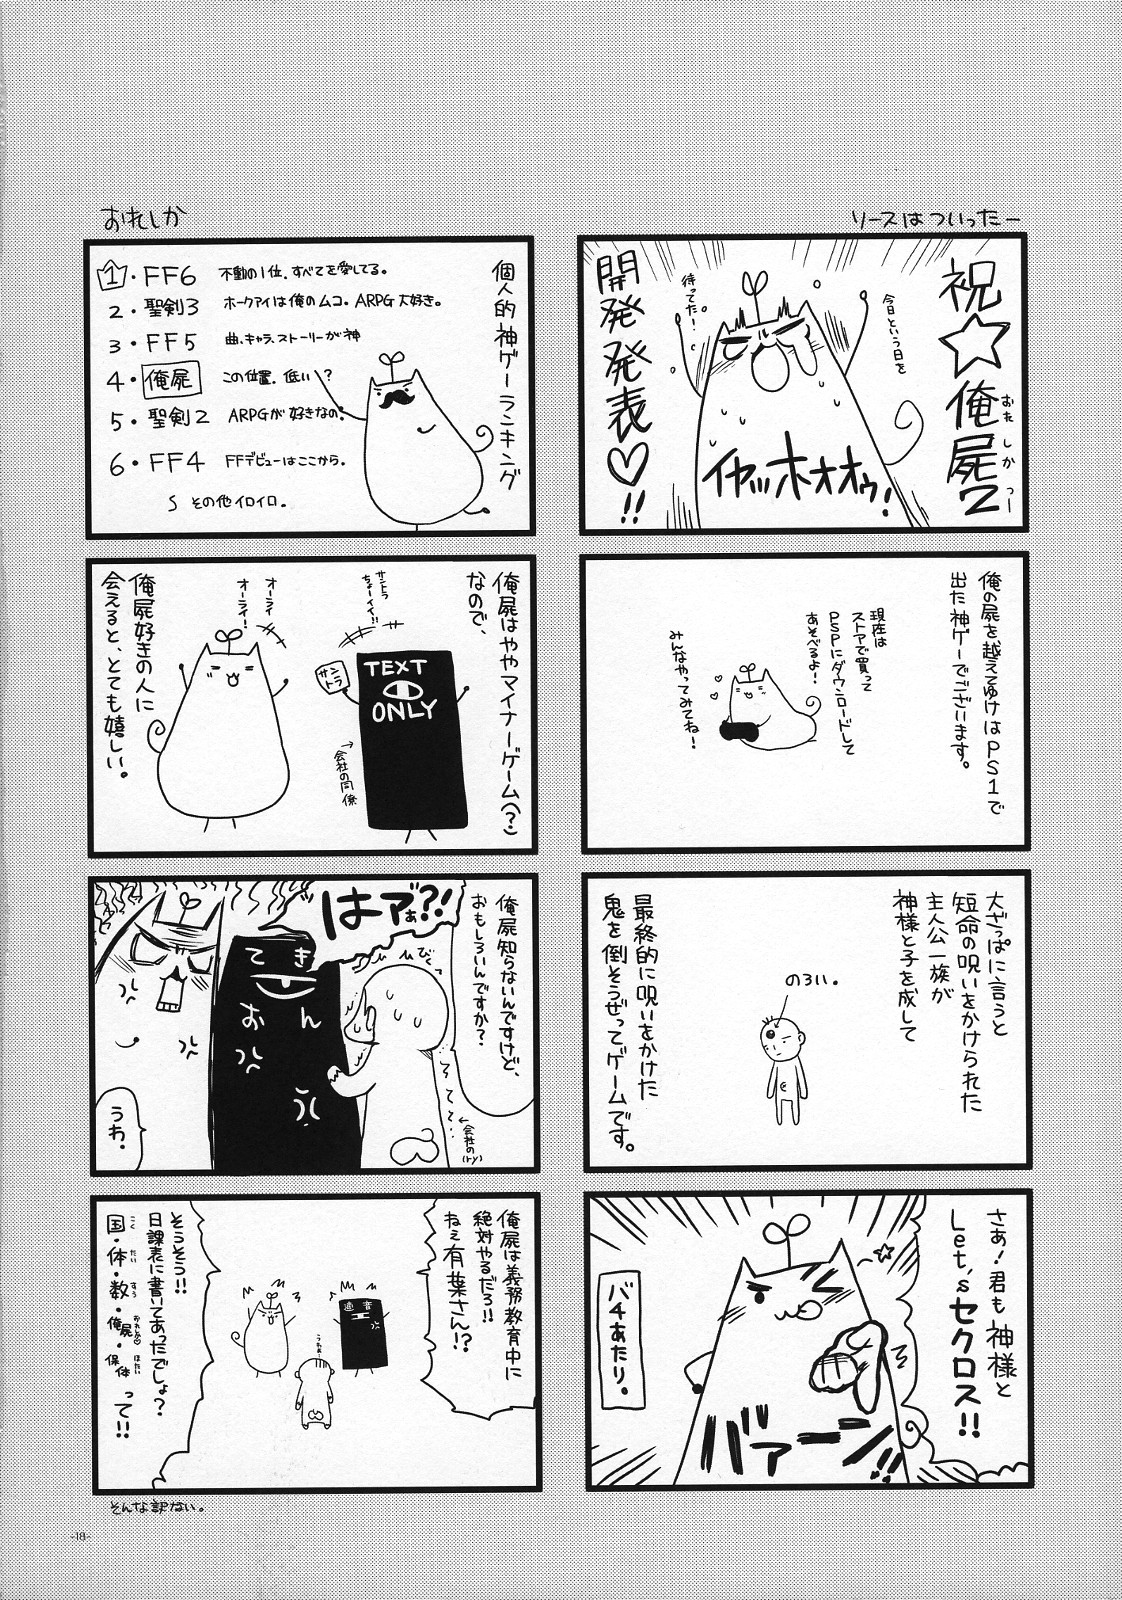 リースはついったー
祝☆俺屍2
おれしかつー
開発発表♡!!
今日という日を
待ってた!
イヤッホオオゥ!
俺の屍を越えてゆけはPS1で
出た神ゲーでございます。
現在は
ストアで買って
PSPにダウンロードして
あそべるよ!
みんなやってみてね!
大ざっぱに言うと
短命の呪いをかけられた
主人公一族が
神様と子を成して
のろい。
最終的に呪いをかけた
鬼を倒そうぜってゲームです。
さぁ!君も神様と
Let'sセクロス!!
バァーン!!
バチあたり。
おれしか
個人的神ゲーランキング
1・FF6 不動の1位、すべてを愛してる。
2・聖剣3 ホークアイは俺のムコ。ARPG大好き。
3・FF5 曲、キャラ、ストーリーが神
4・俺屍 この位置、低い?
5・聖剣2 ARPGが好きなの。
6・FF4 FFデビューはここから。
S その他イロイロ。
俺屍はややマイナーゲーム(?)
なので、
サントラ
ちょーイイ!!
TEXT
ONLY
サントラ
→会社の同僚
オーライ
オーライ!
俺屍好きの人に
会えると、とても嬉しい。
俺屍知らないんですけど、
おもしろいんですか?
はァぁ?!
びくっ
てきおん
←会社の(ry)
うわ。
俺屍は義務教育中に
絶対やるだろ!!
ねぇ有葉さん!?
そうそう!!
日課表に書いてあったでしょ?
国・体・数・俺屍・保体って!!
こく たい すう おれしか ほたい
そんな訳ない。
-18-